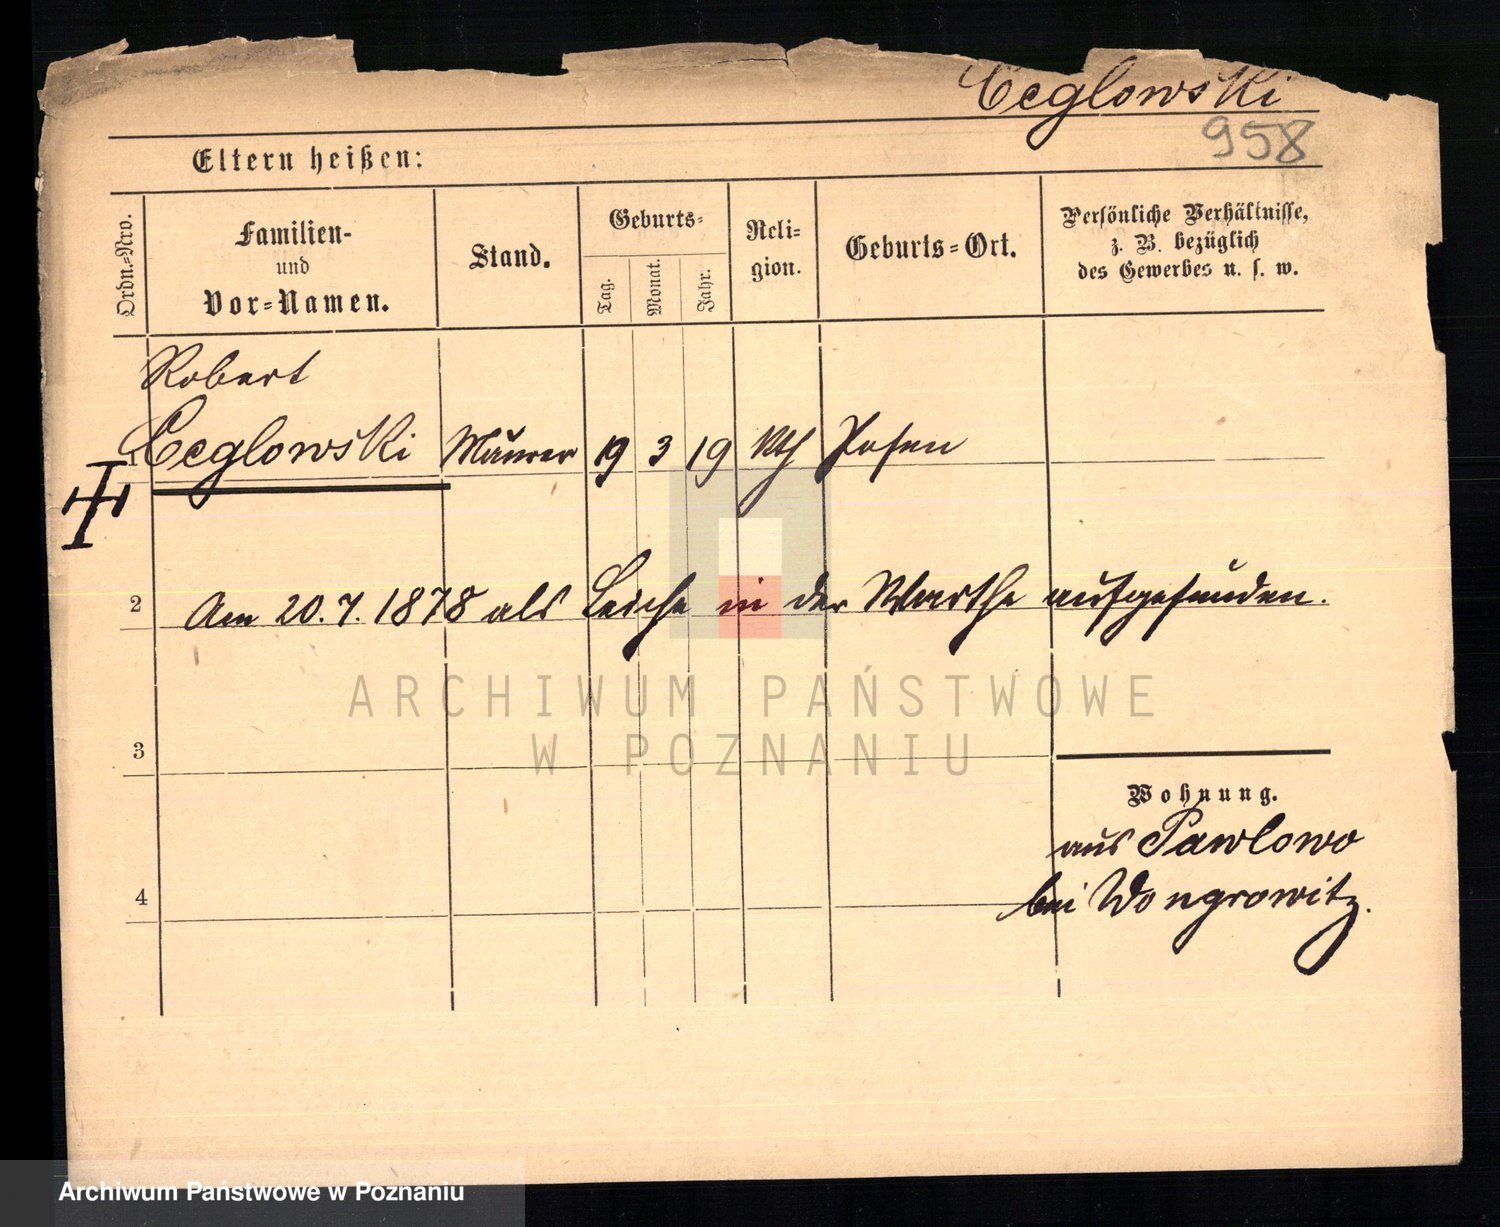 Ceglowski
958
Eltern heißen:
Ordn.-Nro.
Familien-
und
Vor-Namen.
Stand.
Geburts-
Tag.
Monat.
Jahr.
Reli-
gion.
Geburts-Ort.
Persönliche Verhältnisse,
z. B. bezüglich
des Gewerbes u. s. w.
Robert
1 Ceglowski Maurer 19 3 19 kth Posen
2 Am 20.7.1878 als Leiche in der Warthe aufgefunden.
3
Wohnung.
aus Pawlowo
4 bei Wongrowitz.
ARCHIWUM PAŃSTWOWE
W POZNANIU
Archiwum Państwowe w Poznaniu